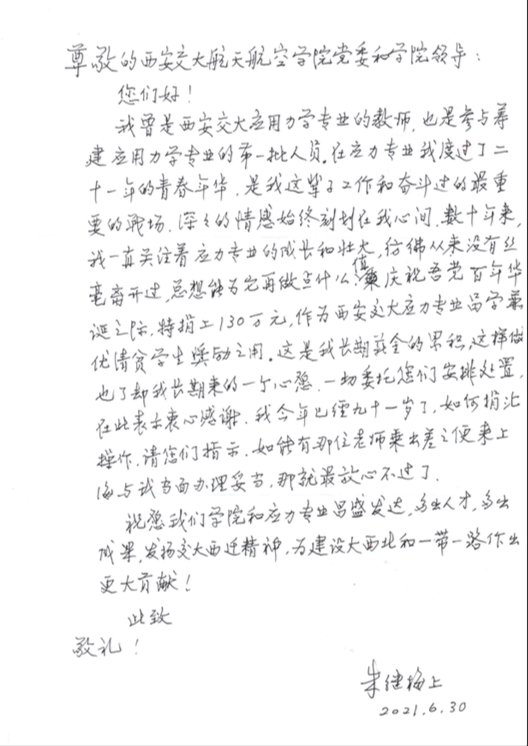 尊敬的西安交大航天航空学院党委和学院领导：
您们好！
我曾是西安交大应用力学专业的教师，也是参与筹
建应用力学专业的第一批人员。在应力专业我度过了二
十一年的青春年华，是我这辈子工作和奋斗过的最重
要的战场，深深的情感始终刻在我心间，数十年来，
我一直关注着应力专业的成长和壮大，仿佛从来没有丝
毫离开过，总想能为它再做点什么，值庆祝吾党百年华
诞之际，特捐上130万元，作为西安交大应力专业品学兼
优清贫学生奖励之用。这是我长期薪金的累积，这样做
也了却我长期来的一个心愿，一切委托您们安排处置，
在此表示衷心感谢。我今年已经九十一岁了，如何捐汇
操作，请您们指示，如能有那位老师乘出差之便来上
海与我当面办理妥当，那就最放心不过了。
祝愿我们学院和应力专业昌盛发达，多出人才，多出
成果，发扬交大西迁精神，为建设大西北和一带一路作出
更大贡献！
此致
敬礼！
朱继梅上
2021.6.30